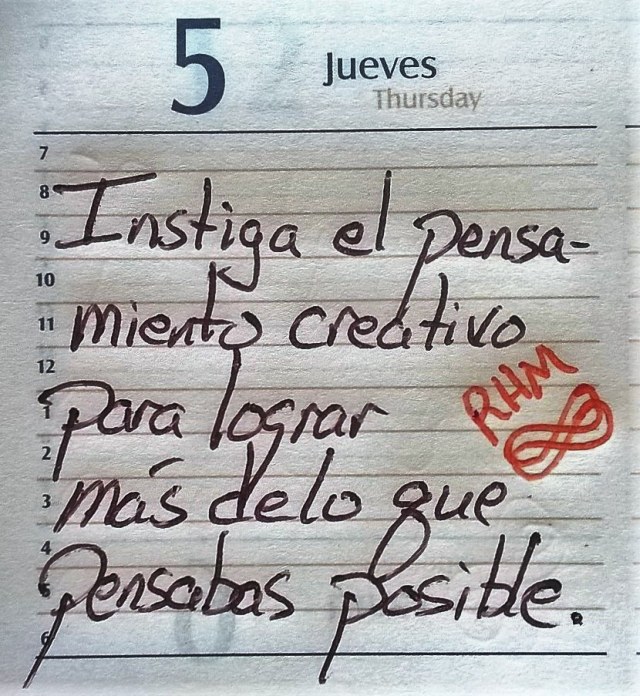 5 Jueves
Thursday
7
8
9 Instiga el pensa-
10
11 miento creativo
12
RHM
1 para lograr
2
3 más delo que
4
5 pensabas posible.
6